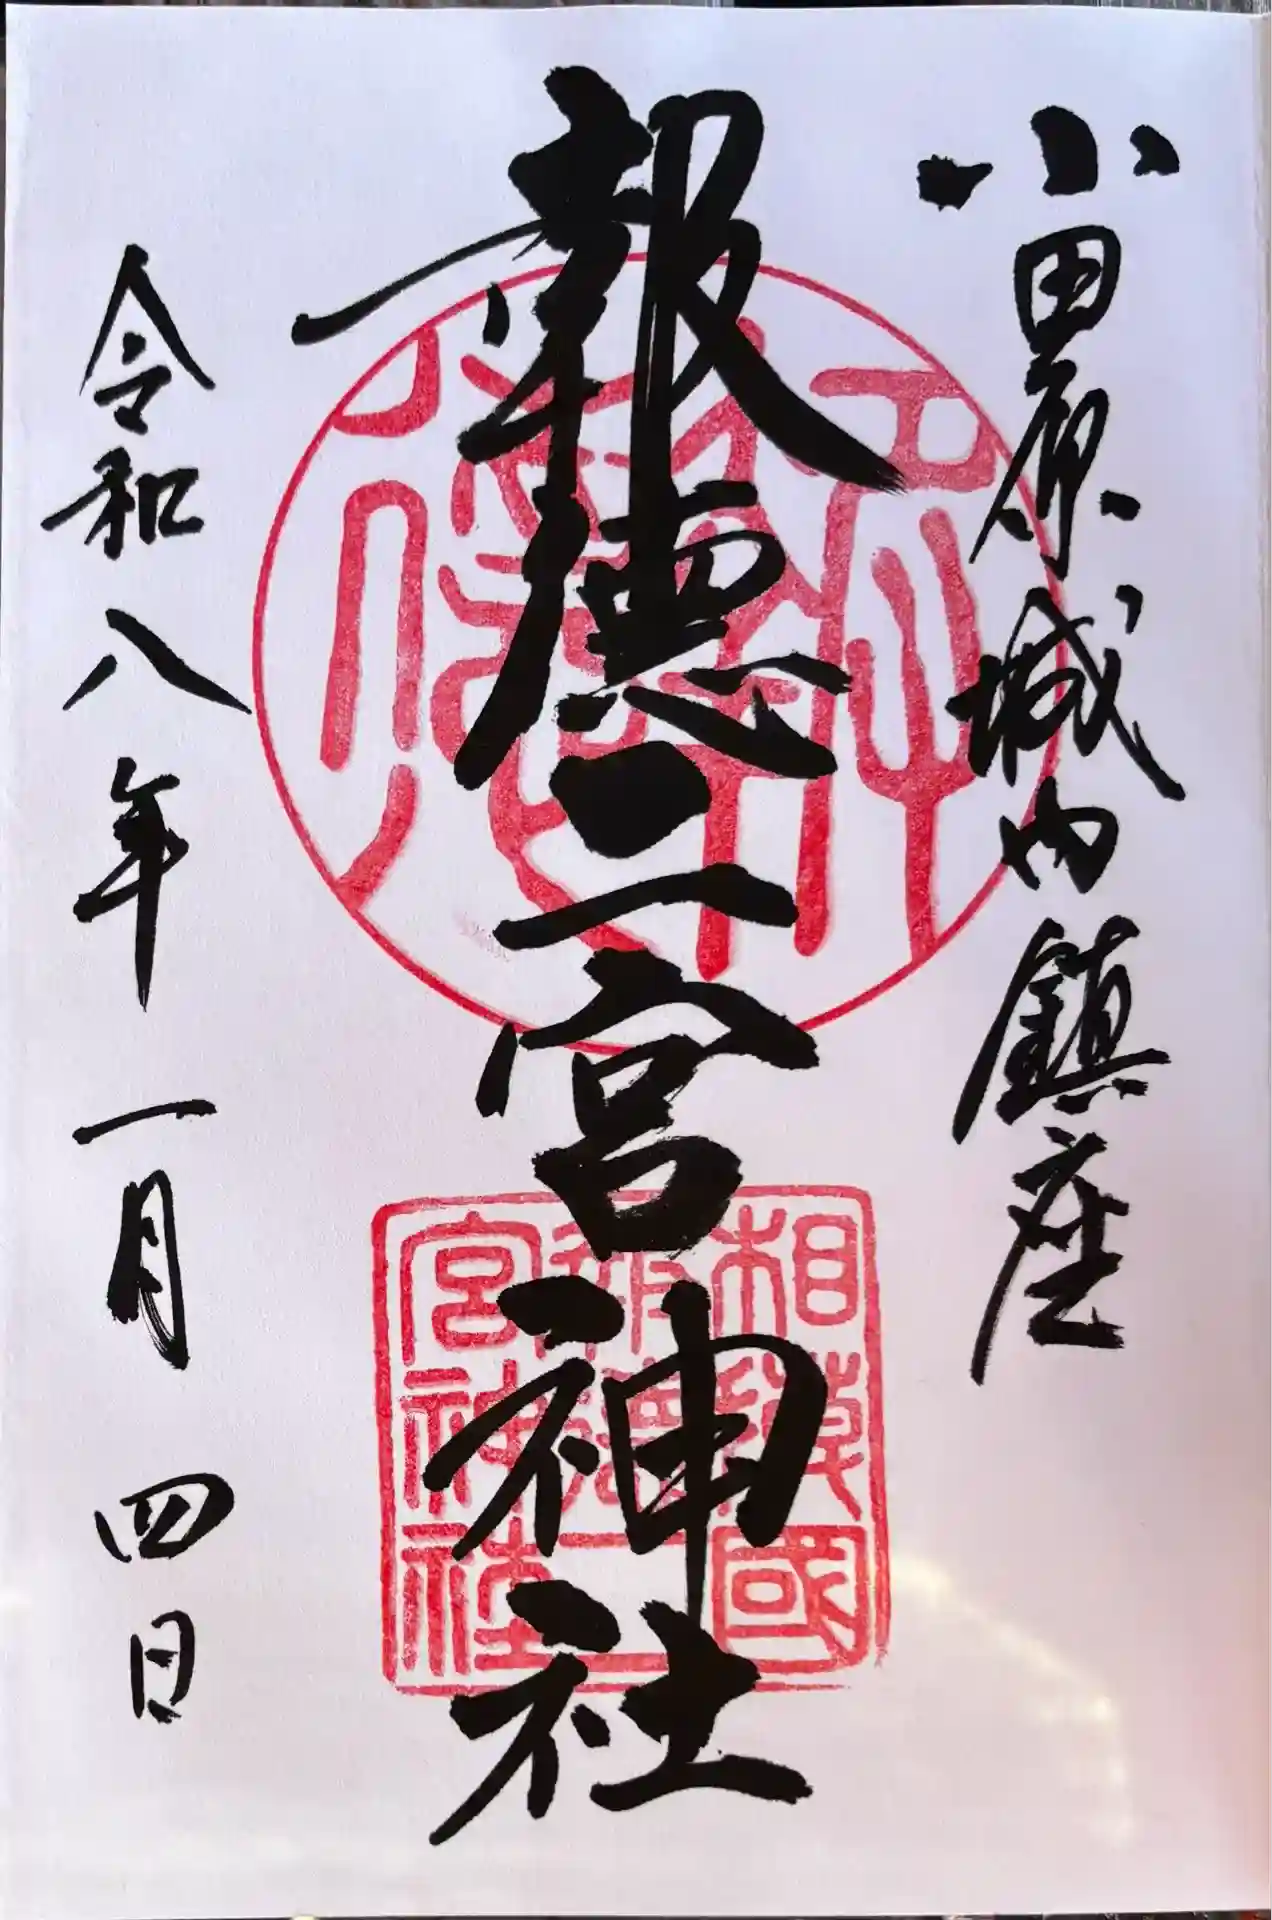 小田原城内鎮座
報徳二宮神社
令和八年一月四日
相模國
報徳二
宮神社